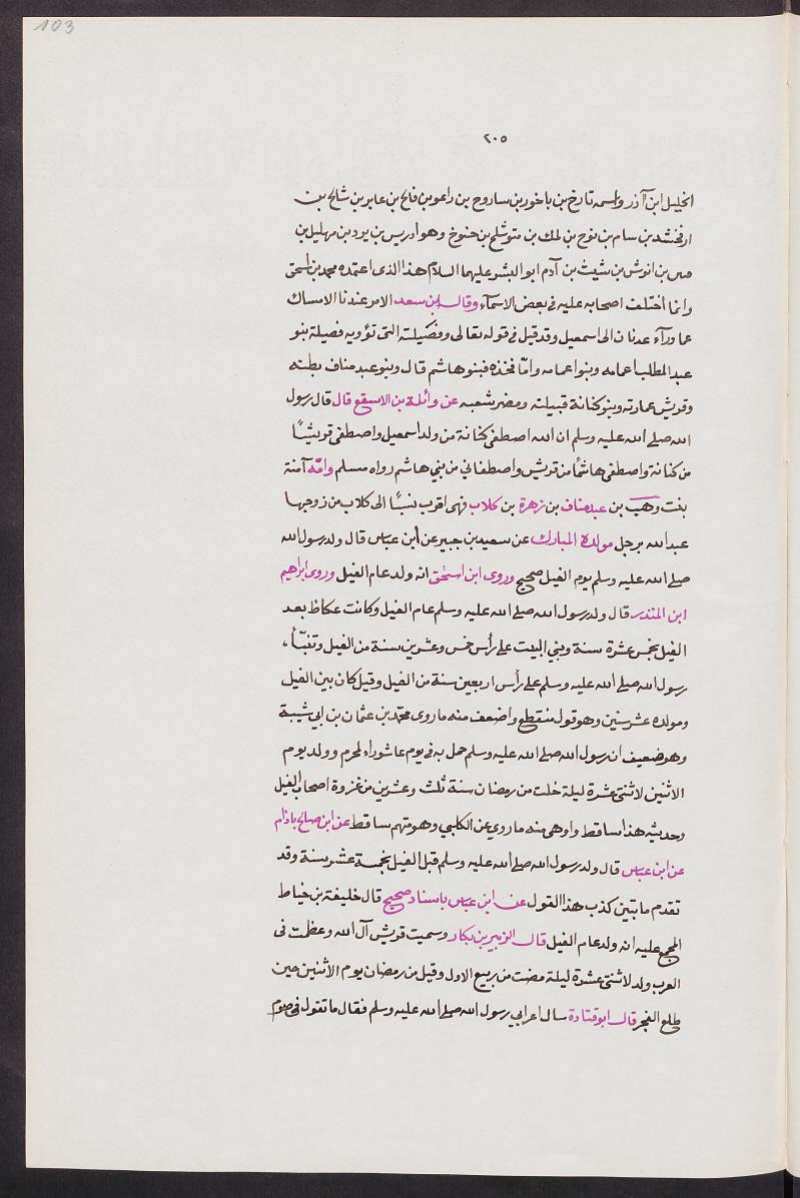 103
٢٠٥
الخليل ابن آذر واسمه تارخ بن باخور بن ساروح بن راعو بن فالخ بن عابر بن شالخ بن
ارفخشد بن سام بن نوح بن لمك بن متوشلح بن حنوخ وهو ادريس بن يرد بن مهليل بن
بن انوش بن شيث بن آدم ابو البشر عليهما السلام هذا الذى اعتمده محمد بن اسحق
وانما أختلف اصحابه عليه فى بعض الاسمآء وقال ابن سعد الامر عندنا الامساك
عما ورآء عدنان الى اسمعيل وقد قيل فى قوله تعالى وفصيلته التى تؤويه فصيلة بنو
عبد المطلب اعمامه وبنوا عمامه وامّا فخذه فبنو هاشم قال وبنو عبد مناف بطنه
وقريش عمارته وبنو كنانة قبيلته ومضر شعبه عن وائلة بن الاسقع قال قال رسول
الله صلى الله عليه وسلم ان الله اصطفى كنانة من ولد اسمعيل واصطفى قريشًا
من كنانة واصطفى هاشمًا من قريش واصطفانى من بنى هاشم رواه مسلم وامّه آمنة
بنت وهب بن عبد مناف بن زهرة بن كلاب فهى اقرب نسبًا الى كلاب من زوجها
عبد الله برجل مولده المبارك عن سعيد بن جبير عن أبن عباس قال ولد رسول الله
صلى الله عليه وسلم يوم الفيل صحيح وروى ابن اسحق انه ولد عام الفيل وروى ابراهيم
ابن المنذر قال ولد رسول الله صلى الله عليه وسلم عام الفيل وكانت عكاظ بعد
الفيل بخمس عشرة سنة وبنى البيت على رأس خمس وعشرين سنة من الفيل وتنبّأ،
رسول الله صلى الله عليه وسلم على رأس اربعين سنة من الفيل وقيل كان بين الفيل
ومولده عشر سنين وهو قول منقطع واضعف منه ما روى محمّد بن عثمان بن ابى شيبة
وهو ضعيف ان رسول الله صلى الله عليه وسلم حمل به فى يوم عاشوراء لمحرم وولد يوم
الاثنين لاثنتى عشرة ليلة خلت من رمضان سنة ثلث وعشرين من غزوة اصحاب الفيل
وحديثه هذا ساقط واوهى منه ما روى عن الكلبى وهو متهم ساقط عن ابن صالح باذام
عن ابن عباس قال ولد رسول الله صلى الله عليه وسلم قبل الفيل بخمسة عشر سنة وقد
تقدم ما تبيّن كذب هذا القول عن ابن عباس باسناد صحيح قال خليفة بن خياط
المجمع عليه انه ولد عام الفيل قال الزبير بن بكار وسميت قريش آل الله وعظمت فى
العرب ولد لاثنتى عشرة ليلة مضت من ربيع الاول وقيل من رمضان يوم الاثنين حين
طلع الفجر قال ابو قتادة سال اعرابى رسول الله صلى الله عليه وسلم فقال ما تقول فى صوم